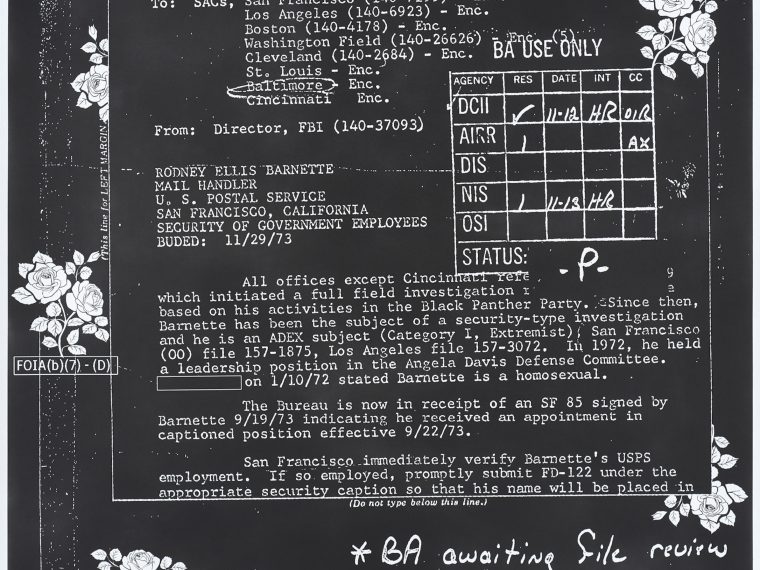 To: SACs, San Francisco
Los Angeles (140-6923) - Enc.
Boston (140-4178) - Enc.
Washington Field (140-26626) - Enc. (5)
BA USE ONLY
Cleveland (140-2684) - Enc.
St. Louis - Enc.
Baltimore - Enc.
Cincinnati Enc.
AGENCY RES DATE INT CC
DCII ✓ 11-12 HR OIR
AIRR 1 AX
DIS
NIS 1 11-13 HR
OSI
STATUS: -P-
From: Director, FBI (140-37093)
(This line for LEFT MARGIN
RODNEY ELLIS BARNETTE
MAIL HANDLER
U. S. POSTAL SERVICE
SAN FRANCISCO, CALIFORNIA
SECURITY OF GOVERNMENT EMPLOYEES
BUDED: 11/29/73
All offices except Cincinnati refe
which initiated a full field investigation
based on his activities in the Black Panther Party. Since then,
Barnette has been the subject of a security-type investigation
and he is an ADEX subject (Category I, Extremist), San Francisco
(OO) file 157-1875, Los Angeles file 157-3072. In 1972, he held
a leadership position in the Angela Davis Defense Committee.
FOIA(b)(7) - (D)
on 1/10/72 stated Barnette is a homosexual.
The Bureau is now in receipt of an SF 85 signed by
Barnette 9/19/73 indicating he received an appointment in
captioned position effective 9/22/73.
San Francisco immediately verify Barnette's USPS
employment. If so employed, promptly submit FD-122 under the
appropriate security caption so that his name will be placed in
(Do not type below this line.)
* BA awaiting file review